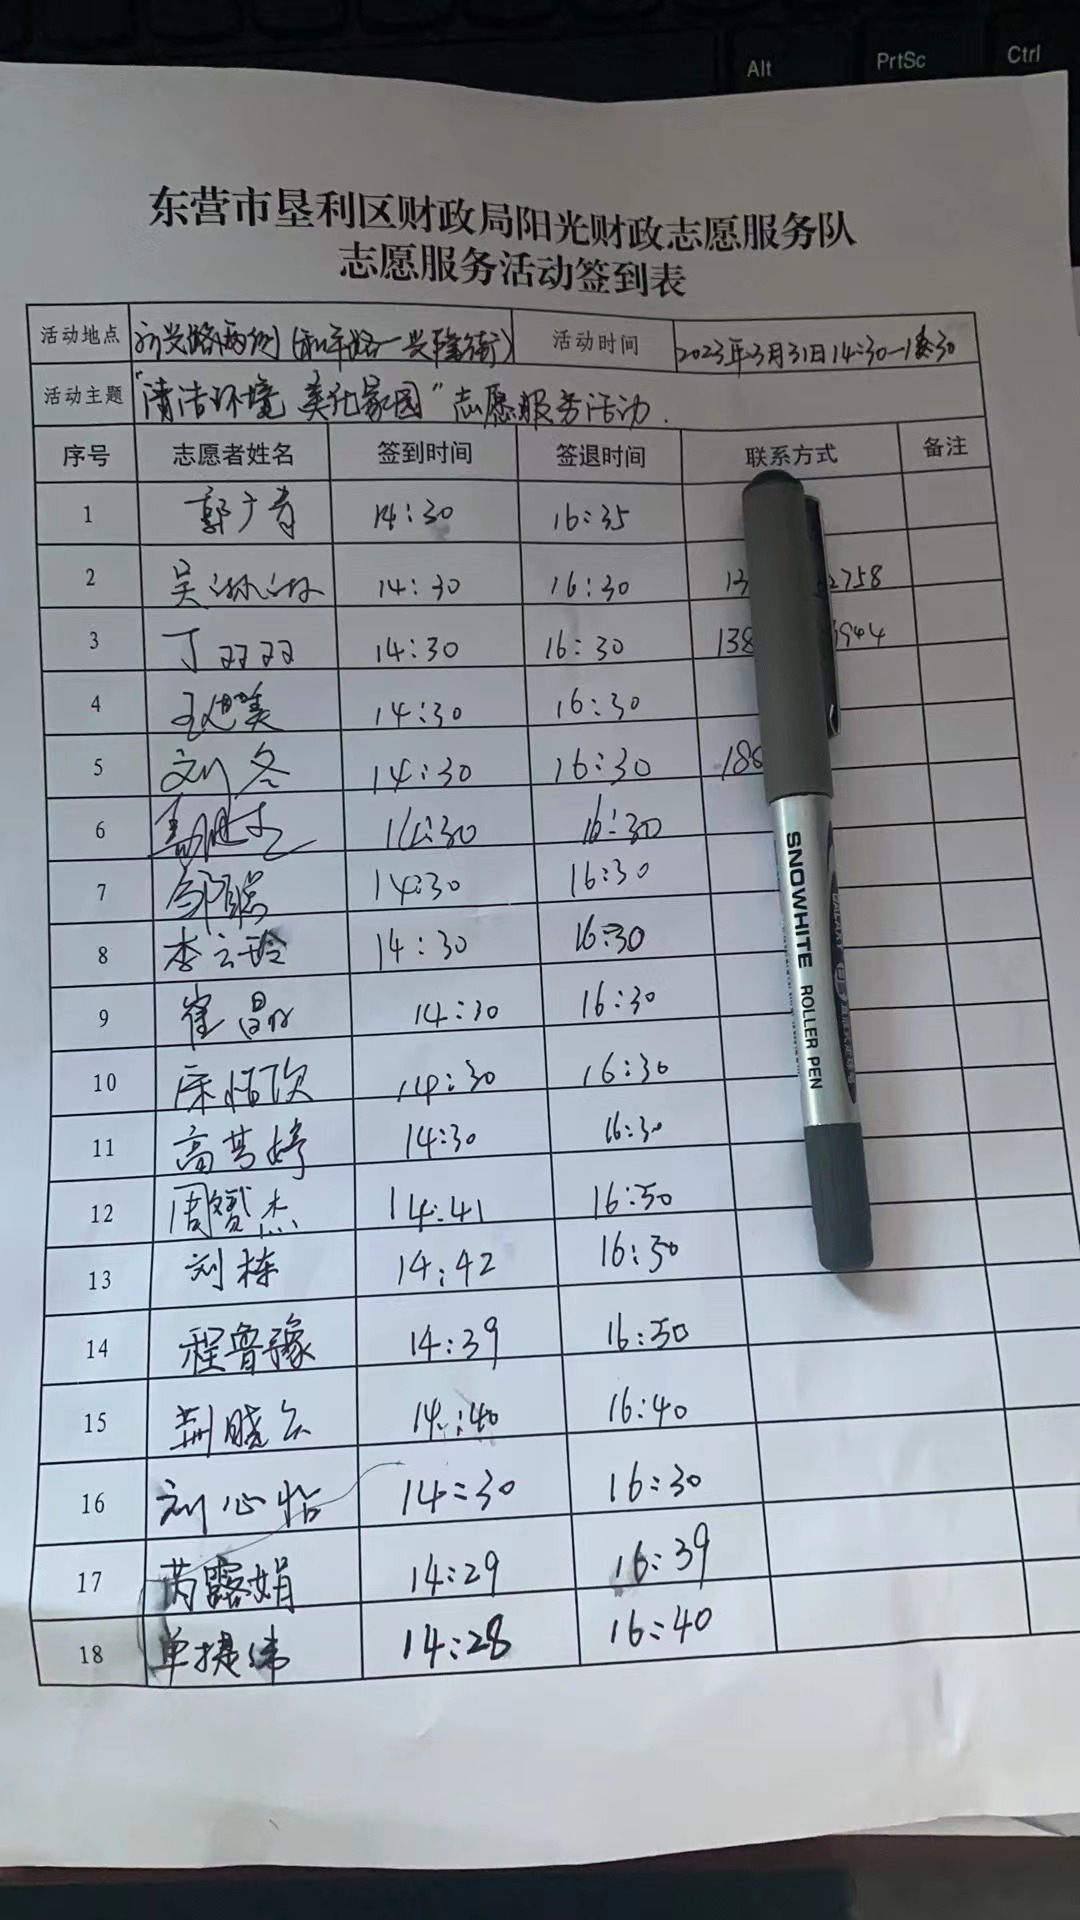 Alt PrtSc Ctrl
东营市垦利区财政局阳光财政志愿服务队
志愿服务活动签到表
活动地点 兴路两侧(和平路一兴隆街) 活动时间 2023年3月31日14:30—16:30
活动主题 "清洁环境 美化家园"志愿服务活动.
序号 志愿者姓名 签到时间 签退时间 联系方式 备注
1 郭广青 14:30 16:35
2 吴淋淋 14:30 16:30 13 2758
3 丁双双 14:30 16:30 138 944
4 14:30 16:30
5 刘冬 14:30 16:30 186
6 14:30 16:30
7 邹聪 14:30 16:30
8 李云玲 14:30 16:30
9 崔晶 14:30 16:30
10 14:30 16:30
11 高梦婷 14:30 16:30
12 周赟杰 14:41 16:50
13 刘栋 14:42 16:50
14 程鲁豫 14:39 16:50
15 荆晓 14:40 16:40
16 刘心怡 14:30 16:30
17 芮露娟 14:29 16:39
18 单捷 14:28 16:40
SNOWHITE ROLLER PEN